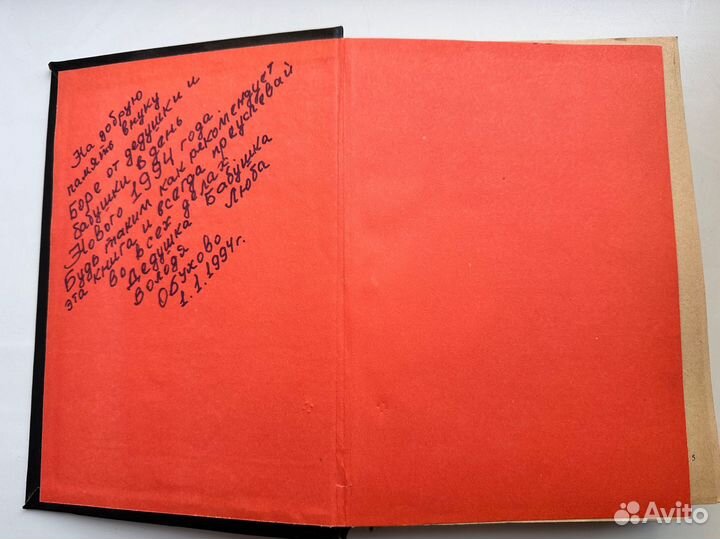 На добрую
память внуку
Боре от дедушки и
бабушки в день
Нового 1994 года.
Будь таким как рекомендует
эта книга и всегда преуспевай
во всех делах
Дедушка Бабушка
Володя Люба
Обухово
1.1.1994г.
5
Avito